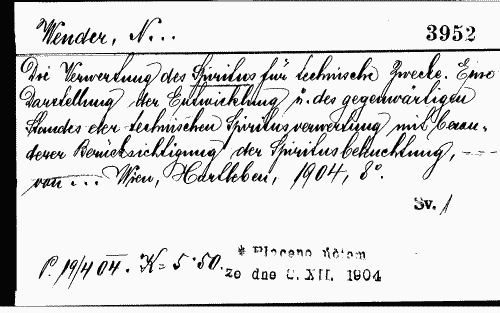 Wender, N...
3952
Die Verwertung des Spiritus für technische Zwecke. Eine
Darstellung der Entwicklung u. des gegenwärtigen
Standes der technischen Spiritusverwertung mit beson-
derer Berücksichtigung der Spiritusbeleuchtung, ---
von ... Wien, Hartleben, 1904, 8°.
Sv. 1
* Placeno účtem
P. 19/4 04. K= 5·50. ze dne 6. XII. 1904